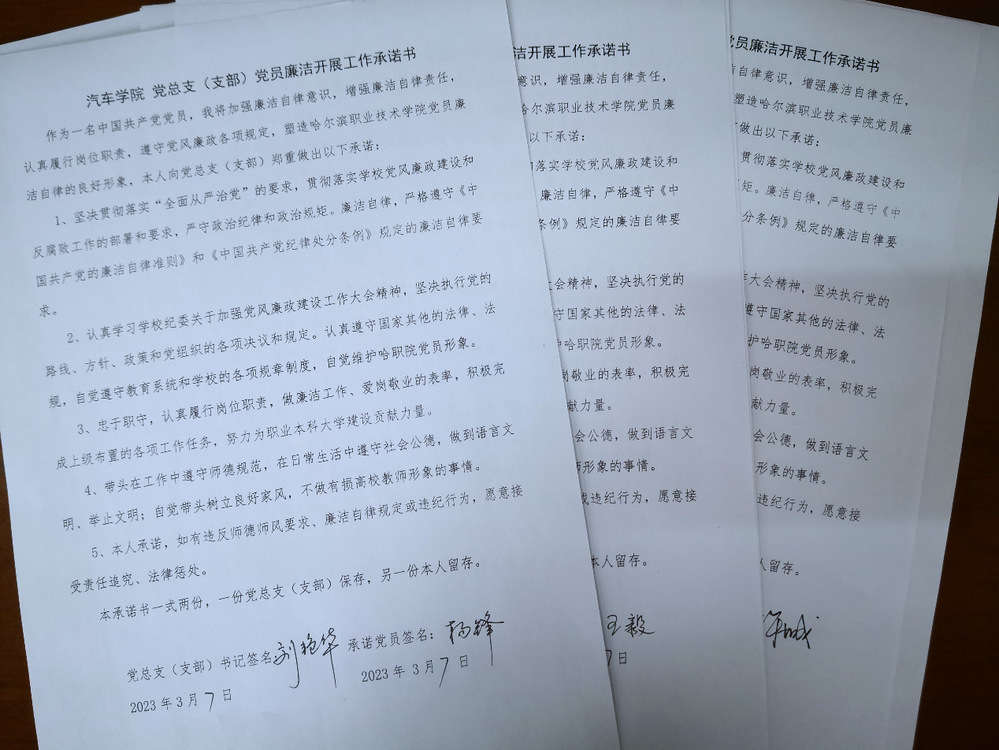 汽车学院 党总支（支部）党员廉洁开展工作承诺书
作为一名中国共产党党员，我将加强廉洁自律意识，增强廉洁自律责任，
认真履行岗位职责，遵守党风廉政各项规定，塑造哈尔滨职业技术学院党员廉
洁自律的良好形象，本人向党总支（支部）郑重做出以下承诺：
1、坚决贯彻落实“全面从严治党”的要求，贯彻落实学校党风廉政建设和
反腐败工作的部署和要求，严守政治纪律和政治规矩。廉洁自律，严格遵守《中
国共产党的廉洁自律准则》和《中国共产党纪律处分条例》规定的廉洁自律要
求。
2、认真学习学校纪委关于加强党风廉政建设工作大会精神，坚决执行党的
路线、方针、政策和党组织的各项决议和规定。认真遵守国家其他的法律、法
规，自觉遵守教育系统和学校的各项规章制度，自觉维护哈职院党员形象。
3、忠于职守，认真履行岗位职责，做廉洁工作、爱岗敬业的表率，积极完
成上级布置的各项工作任务，努力为职业本科大学建设贡献力量。
4、带头在工作中遵守师德规范，在日常生活中遵守社会公德，做到语言文
明、举止文明；自觉带头树立良好家风，不做有损高校教师形象的事情。
5、本人承诺，如有违反师德师风要求、廉洁自律规定或违纪行为，愿意接
受责任追究、法律惩处。
本承诺书一式两份，一份党总支（支部）保存，另一份本人留存。
党总支（支部）书记签名 刘艳华 承诺党员签名：杨锋
2023 年 3 月 7 日 2023 年 3 月 7 日
洁开展工作承诺书
意识，增强廉洁自律责任，
哈尔滨职业技术学院党员廉
以下承诺：
彻落实学校党风廉政建设和
廉洁自律，严格遵守《中
条例》规定的廉洁自律要
会精神，坚决执行党的
守国家其他的法律、法
哈职院党员形象。
岗敬业的表率，积极完
献力量。
会公德，做到语言文
形象的事情。
或违纪行为，愿意接
本人留存。
王毅
7日
党员廉洁开展工作承诺书
自律意识，增强廉洁自律责任，
塑造哈尔滨职业技术学院党员廉
做出以下承诺：
贯彻落实学校党风廉政建设和
矩。廉洁自律，严格遵守《中
处分条例》规定的廉洁自律要
大会精神，坚决执行党的
遵守国家其他的法律、法
护哈职院党员形象。
岗敬业的表率，积极完
献力量。
会公德，做到语言文
形象的事情。
违纪行为，愿意接
人留存。